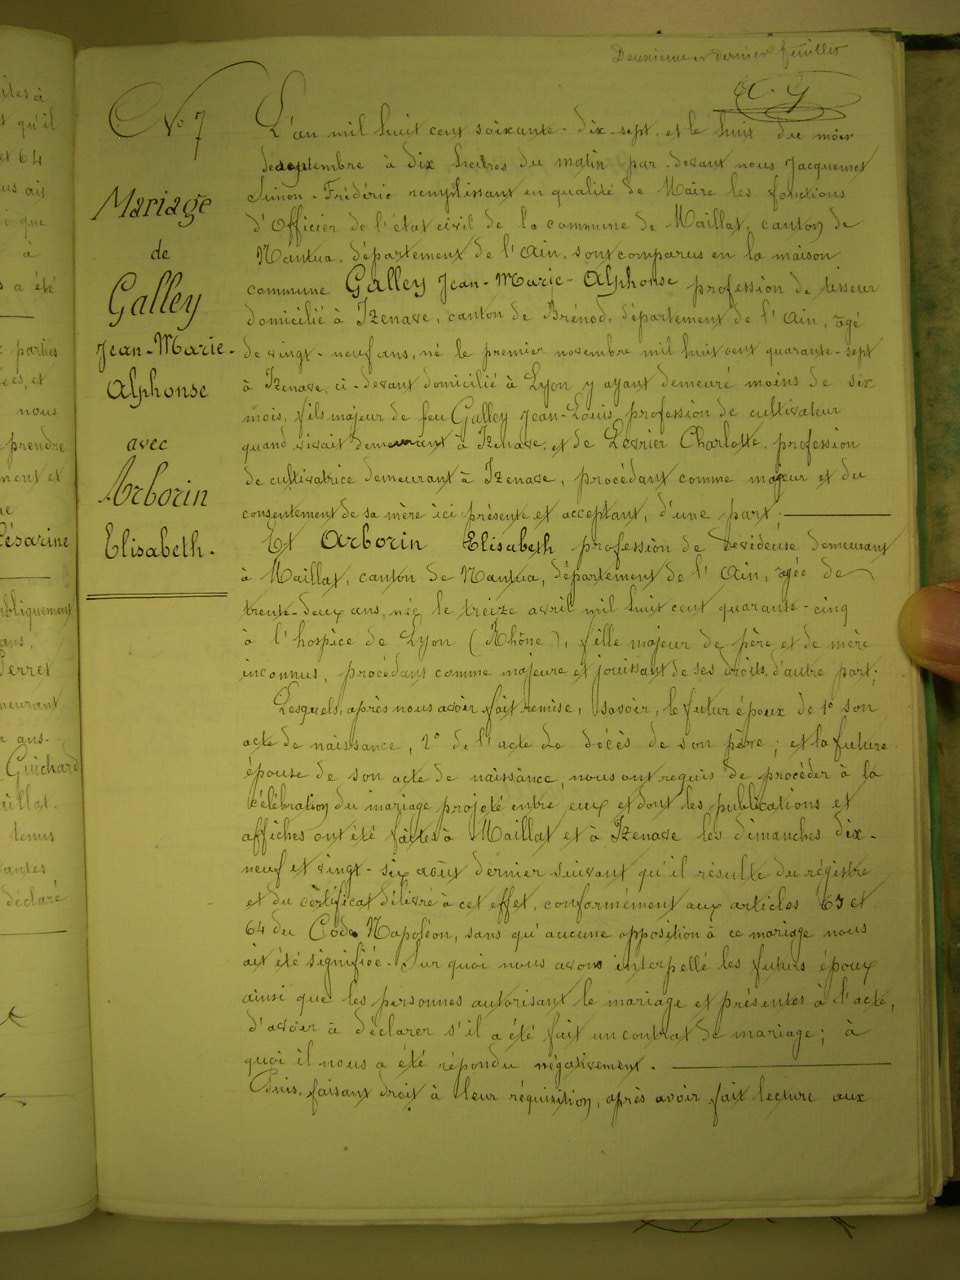 Deuxieme et dernier feuillet
No 7
Mariage
de
Galley
Jean-Marie-
Alphonse
avec
Arborin
Elisabeth.
L'an mil huit cent soixante-dix-sept et le huit du mois
de septembre à dix heures du matin par-devant nous Jacquemet
Simon-Frédéric remplissant en qualité de Maire les fonctions
d'Officier de l'état civil de la commune de Maillat, canton de
Nantua, département de l'Ain, sont comparus en la maison
commune Galley Jean-Marie-Alphonse profession de tisseur
domicilié à Izenave, canton de Brénod, département de l'Ain, âgé
de vingt-neuf ans, né le premier novembre mil huit cent quarante-sept
à Izenave, ci-devant domicilié à Lyon y ayant demeuré moins de six
mois, fils majeur de feu Galley Jean-Louis, profession de cultivateur
quand vivait demeurant à Izenave, et de Levrier Charlotte, profession
de cultivatrice demeurant à Izenave, procédant comme majeur et du
consentement de sa mère ici présente et acceptant, d'une part;
Et Arborin Elisabeth profession de devideuse demeurant
à Maillat, canton de Nantua, département de l'Ain, âgée de
trente-deux ans, née le treize avril mil huit cent quarante-cinq
à l'hospice de Lyon (Rhône), fille majeur de père et de mère
inconnus, procédant comme majeure et jouissant de ses droits, d'autre part;
Lesquels, après nous avoir fait remise, savoir, le futur époux de 1° son
acte de naissance, 2° de l'acte de décès de son père; et la future
épouse de son acte de naissance, nous ont requis de procéder à la
célébration du mariage projeté entre eux et dont les publications et
affiches ont été faites à Maillat et à Izenave les dimanches dix-
neuf et vingt-six août dernier suivant qu'il résulte du régistre
et du certificat délivré à cet effet, conformément aux articles 63 et
64 du Code Napoléon, sans qu'aucune opposition à ce mariage nous
ait été signifiée. Sur quoi nous avons interpellé les futurs époux
ainsi que les personnes autorisant le mariage et présentes à l'acte,
d'avoir à déclarer s'il a été fait un contrat de mariage; à
quoi il nous a été répondu négativement.
Puis, faisant droit à leur réquisition, après avoir fait lecture aux